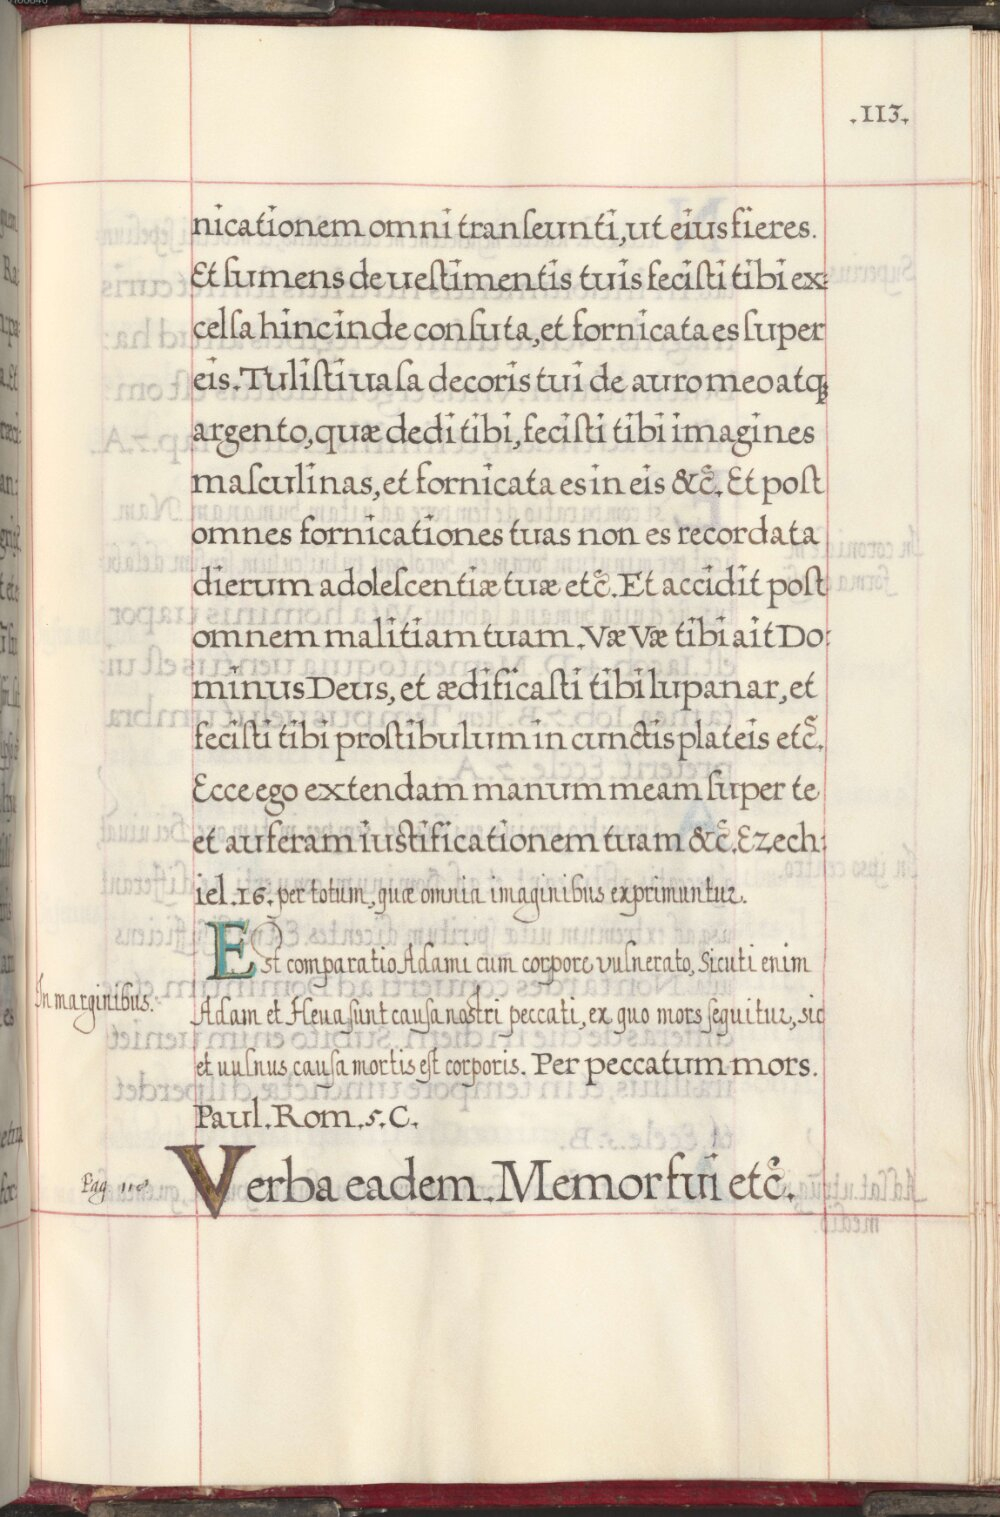 .113.
nicationem omni transeunti, ut eius fieres.
Et sumens de uestimentis tuis fecisti tibi ex:
celsa hinc inde consuta, et fornicata es super
eis. Tulisti uasa decoris tui de auro meo atq;
argento, quæ dedi tibi, fecisti tibi imagines
masculinas, et fornicata es in eis &c̃. Et post
omnes fornicationes tuas non es recordata
dierum adolescentiæ tuæ etc̃. Et accidit post
omnem malitiam tuam. Væ Væ tibi ait Do:
minus Deus, et ædificasti tibi lupanar, et
fecisti tibi prostibulum in cunctis plateis etc̃.
Ecce ego extendam manum meam super te
et auferam iustificationem tuam &c̃. Ezech:
iel. 16. per totum, quæ omnia imaginibus exprimuntur.
Est comparatio Adami cum corpore vulnerato, Sicuti enim
In marginibus.
Adam et Heua sunt causa nostri peccati, ex quo mors sequitur, sic
et uulnus causa mortis est corporis. Per peccatum mors.
Paul. Rom. 5. C.
Pag 110
Verba eadem. Memor fui etc̃.